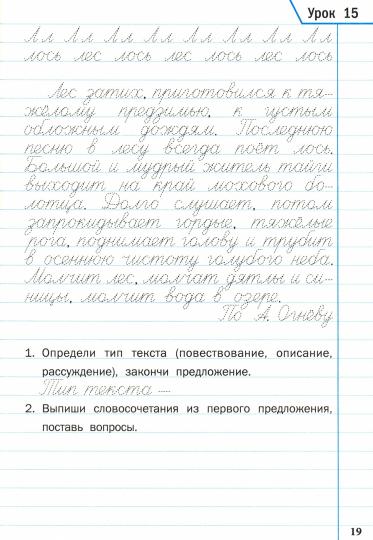 Урок 15
Ал Ал Ал Ал Ал Ал Ал Ал
лось лес лось лес лось лес лось
Лес затих, приготовился к тя-
жёлому предзимью, к густым
обложным дождям. Последнюю
песню в лесу всегда поёт лось.
Большой и мудрый житель тайги
выходит на край мохового бо-
лотца. Долго слушает, потом
запрокидывает гордые, тяжёлые
рога, поднимает голову и трубит
в осеннюю чистоту голубого неба.
Молчит лес, молчат дятлы и си-
ницы, молчит вода в озере.
По А. Огневу
1. Определи тип текста (повествование, описание,
рассуждение), закончи предложение.
Тип текста —
2. Выпиши словосочетания из первого предложения,
поставь вопросы.
19